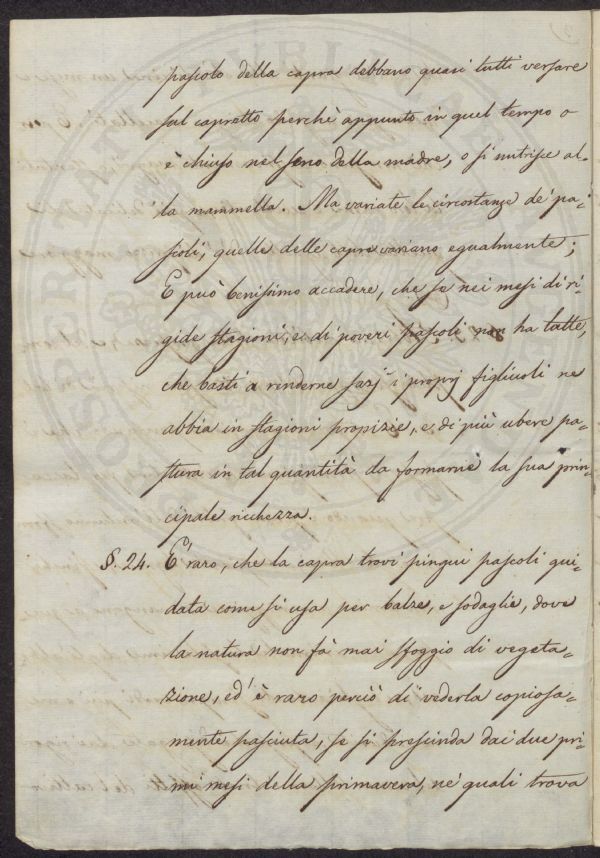 pascolo della capra debbano quasi tutti versare
sul capretto perchè appunto in quel tempo o
è chiuso nel seno della madre, o si nutrisce al-
la mammella. Ma variate le circostanze de' pa-
scoli, quelle delle capre variano egualmente;
E può benissimo accadere, che se nei mesi di ri-
gide stagioni, e di poveri pascoli non ha latte,
che basti a renderne sazj i proprj figliuoli ne
abbia in stagioni propizie, e di più ubere pa-
stura in tal quantità da formarne la sua prin-
cipale ricchezza.
§. 24. E' raro, che la capra trovi pingui pascoli gui-
data come si usa per balze, e sodaglie, dove
la natura non fà mai sfoggio di vegeta-
zione, ed è raro perciò di vederla copiosa-
mente pasciuta, se si prescinda dai due pri-
mi mesi della primavera, ne' quali trova